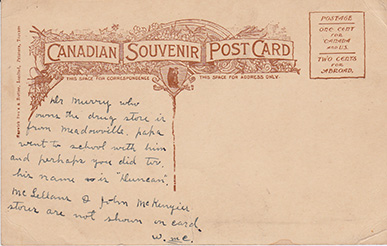 CANADIAN SOUVENIR POST CARD
THIS SPACE FOR CORRESPONDENCE
THIS SPACE FOR ADDRESS ONLY.
POSTAGE
ONE CENT
FOR
CANADA
AND U.S.
TWO CENTS
FOR
ABROAD.
Mr Murry who
owns the drug store is
from Meadowville. papa
went to school with him
and perhaps you did too.
his name is "Duncan".
McLellans & John McKenzies
stores are not shown on card.
W. McC.